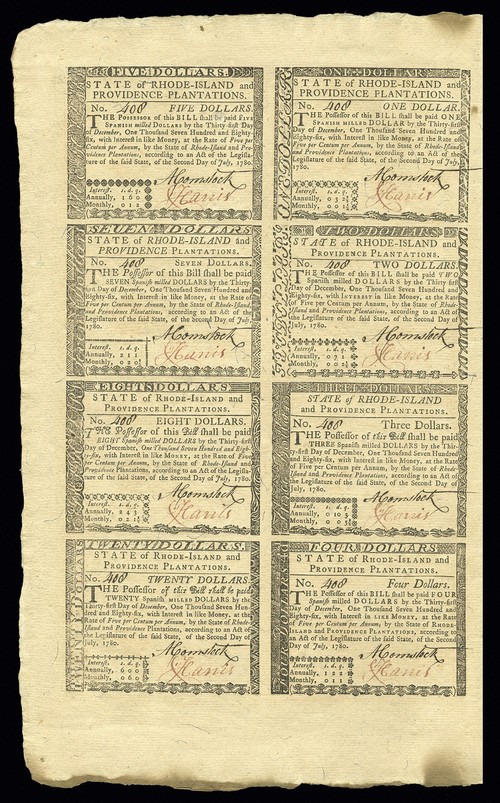 FIVE DOLLARS.
STATE of RHODE-ISLAND and
PROVIDENCE PLANTATIONS.
No. 408 FIVE DOLLARS.
THE POSSESSOR of this BILL shall be paid FIVE
SPANISH milled DOLLARS by the Thirty-first Day of
December, One Thousand Seven Hundred and Eighty-
six, with Interest in like Money, at the Rate of Five per
Centum per Annum, by the State of Rhode-Island and Pro-
vidence Plantations, according to an Act of the Legislature
of the said State, of the Second Day of July, 1780.
Interest. s. d. q.
Annually, 1 6 0
Monthly, 0 1 2
A Comstock
Harris
ONE DOLLAR
STATE of RHODE-ISLAND and
PROVIDENCE PLANTATIONS.
No. 408 ONE DOLLAR.
THE Possessor of this BILL shall be paid ONE
SPANISH milled DOLLAR by the Thirty-first
Day of December, One Thousand Seven Hundred and
Eighty-six, with Interest in like Money, at the Rate of
Five per Centum per Annum, by the State of Rhode-Island
and Providence Plantations, according to an Act of the
Legislature of the said State, of the Second Day of
July, 1780.
Interest. s. d. q.
Annually,
Monthly,
A Comstock
Harris
SEVEN DOLLARS
STATE of RHODE-ISLAND and
PROVIDENCE PLANTATIONS.
No. 408 SEVEN DOLLARS.
THE Possessor of this Bill shall be paid
SEVEN Spanish milled DOLLARS by the Thirty-
first Day of December, One Thousand Seven Hundred and
Eighty-six, with Interest in like Money, at the Rate of
Five per Centum per Annum, by the State of Rhode-Island
and Providence Plantations, according to an Act of the
Legislature of the said State, of the Second Day of July,
1780.
Interest. s. d. q.
Annually, 2 1 1
Monthly,
A Comstock
Harris
TWO DOLLARS
STATE of RHODE-ISLAND and
PROVIDENCE PLANTATIONS.
No. 408 TWO DOLLARS.
THE Possessor of this BILL shall be paid TWO
Spanish milled DOLLARS by the Thirty first
Day of December, One Thousand Seven Hundred and
Eighty-six, with INTEREST in like Money, at the Rate of
Five per Centum per Annum, by the State of Rhode-Island
and Providence Plantations, according to an Act of
the Legislature of the said State, of the Second Day of
July, 1780.
Interest. s. d. q.
Annually,
Monthly,
A Comstock
Harris
EIGHT DOLLARS
STATE of RHODE-ISLAND and
PROVIDENCE PLANTATIONS.
No. 408 EIGHT DOLLARS.
THE Possessor of this Bill shall be paid
EIGHT Spanish milled DOLLARS by the Thirty-first
Day of December, One Thousand Seven Hundred and Eighty-
six, with Interest in like Money, at the Rate of Five
per Centum per Annum, by the State of Rhode-Island and
Providence Plantations, according to an Act of the Legisla-
ture of the said State, of the Second Day of July, 1780.
Interest. s. d. q.
Annually, 2 4 3
Monthly,
A Comstock
Harris
THREE DOLLARS
STATE of RHODE-ISLAND
and PROVIDENCE PLANTATIONS.
No. 408 Three Dollars.
THE Possessor of this Bill shall be paid
THREE Spanish milled DOLLARS by the Thir-
ty-first Day of December, One Thousand Seven Hundred
and Eighty-six, with Interest in like Money, at the Rate
of Five per Centum per Annum, by the State of Rhode-
Island and Providence Plantations, according to an Act of
the Legislature of the said State, of the Second Day of
July, 1780.
Interest. s. d. q.
Annually,
Monthly,
A Comstock
Harris
TWENTY DOLLARS.
STATE of RHODE-ISLAND and
PROVIDENCE PLANTATIONS.
No. 408 TWENTY DOLLARS.
THE Possessor of this Bill shall be paid
TWENTY Spanish MILLED DOLLARS by the
Thirty-first Day of December, One Thousand Seven Hun-
dred and Eighty-six, with Interest in like Money, at the
Rate of Five per Centum per Annum, by the State of Rhode-
Island and Providence Plantations, according to an Act of
the Legislature of the said State, of the Second Day of
July, 1780.
Interest. s. d. q.
Annually,
Monthly,
A Comstock
Harris
FOUR DOLLARS
STATE of RHODE-ISLAND and
PROVIDENCE PLANTATIONS.
No. 408 Four Dollars.
THE Possessor of this BILL shall be paid FOUR
Spanish milled DOLLARS by the Thirty-first
Day of December, One Thousand Seven Hundred and
Eighty-six, with Interest in LIKE MONEY, at the Rate
of Five per Centum per Annum, by the State of RHODE-
ISLAND and PROVIDENCE PLANTATIONS, according to an
Act of the Legislature of the said State, of the Second Day
of July, 1780.
Interest. s. d. q.
Annually,
Monthly,
A Comstock
Harris